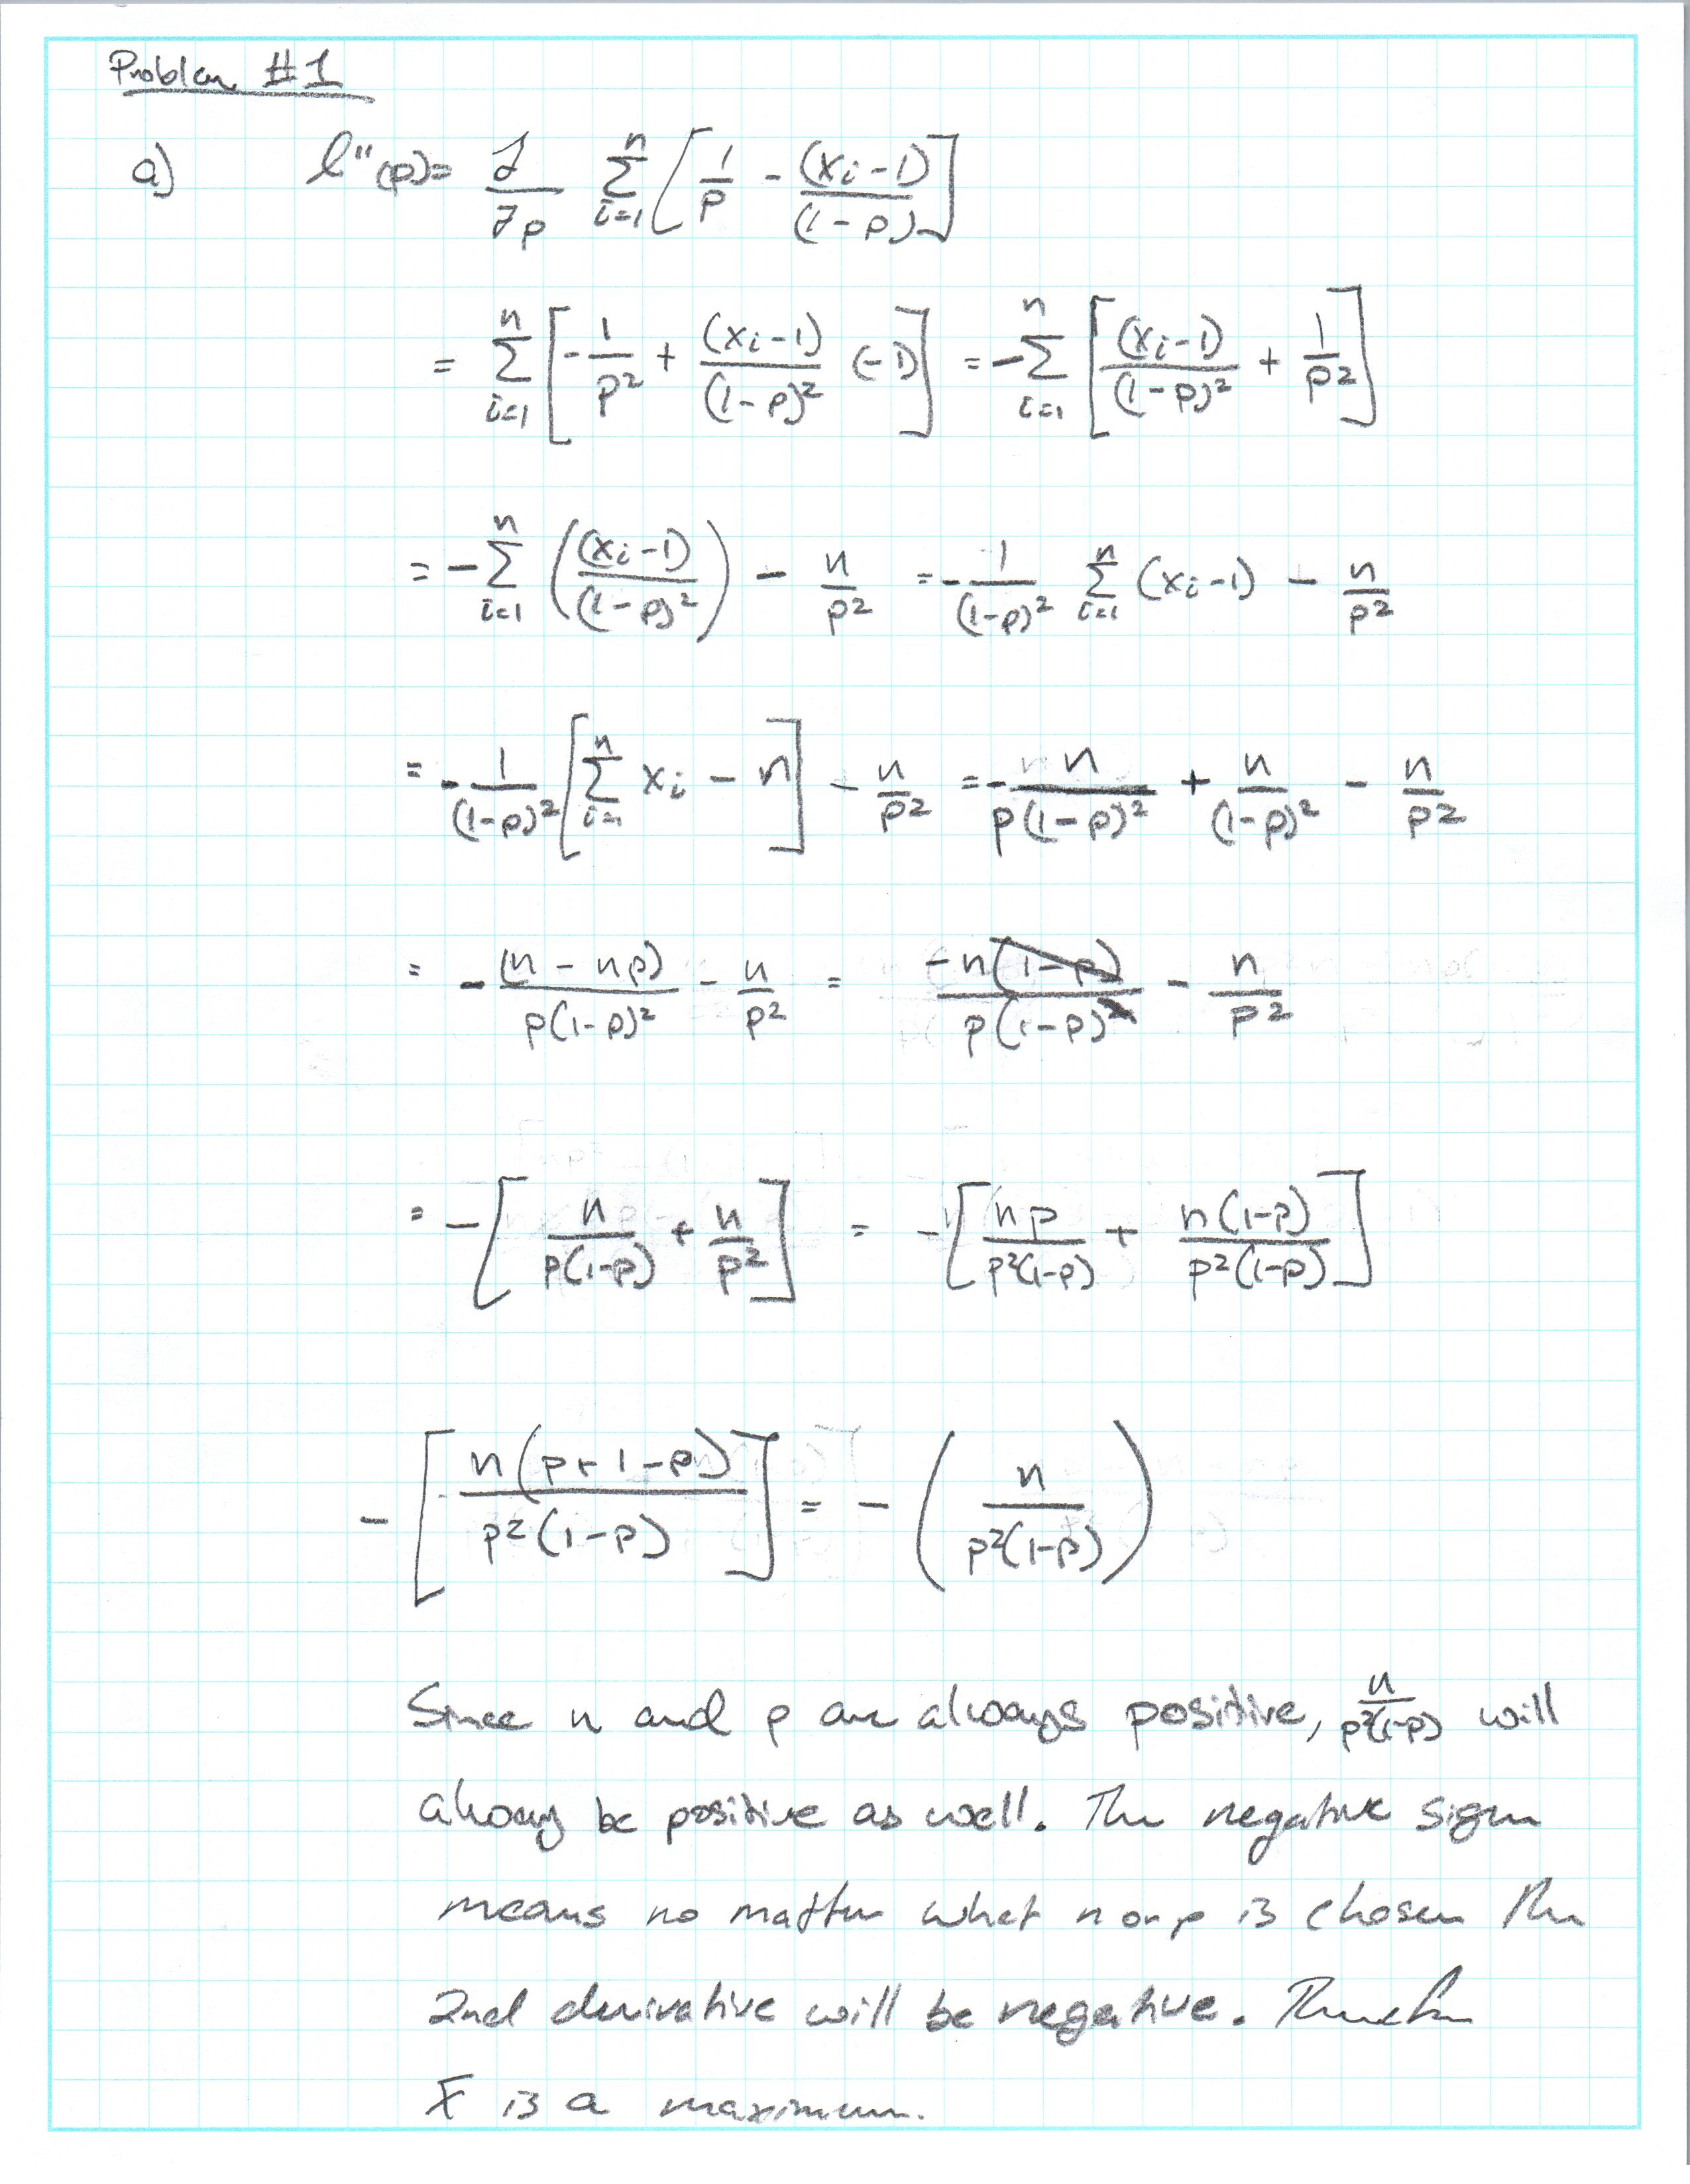 Problem #1
a) l''(p) = ∂/∂p Σ_{i=1}^{n} [1/p - (xi-1)/(1-p)]
= Σ_{i=1}^{n} [-1/p² + (xi-1)/(1-p)² (-1)] = -Σ_{i=1}^{n} [(xi-1)/(1-p)² + 1/p²]
= -Σ_{i=1}^{n} ((xi-1)/(1-p)²) - n/p² = -1/(1-p)² Σ_{i=1}^{n} (xi-1) - n/p²
= -1/(1-p)² [Σ_{i=1}^{n} xi - n] - n/p² = -n/(p(1-p)²) + n/(1-p)² - n/p²
= -(n-np)/(p(1-p)²) - n/p² = -n(1-p)/(p(1-p)²) - n/p²
= -[n/(p(1-p)) + n/p²] = -[np/(p²(1-p)) + n(1-p)/(p²(1-p))]
-[n(p+1-p)/(p²(1-p))] = -(n/(p²(1-p)))
Since n and p are always positive, n/(p²(1-p)) will
always be positive as well. The negative sign
means no matter what n or p is chosen the
2nd derivative will be negative. Therefore
x̄ is a maximum.